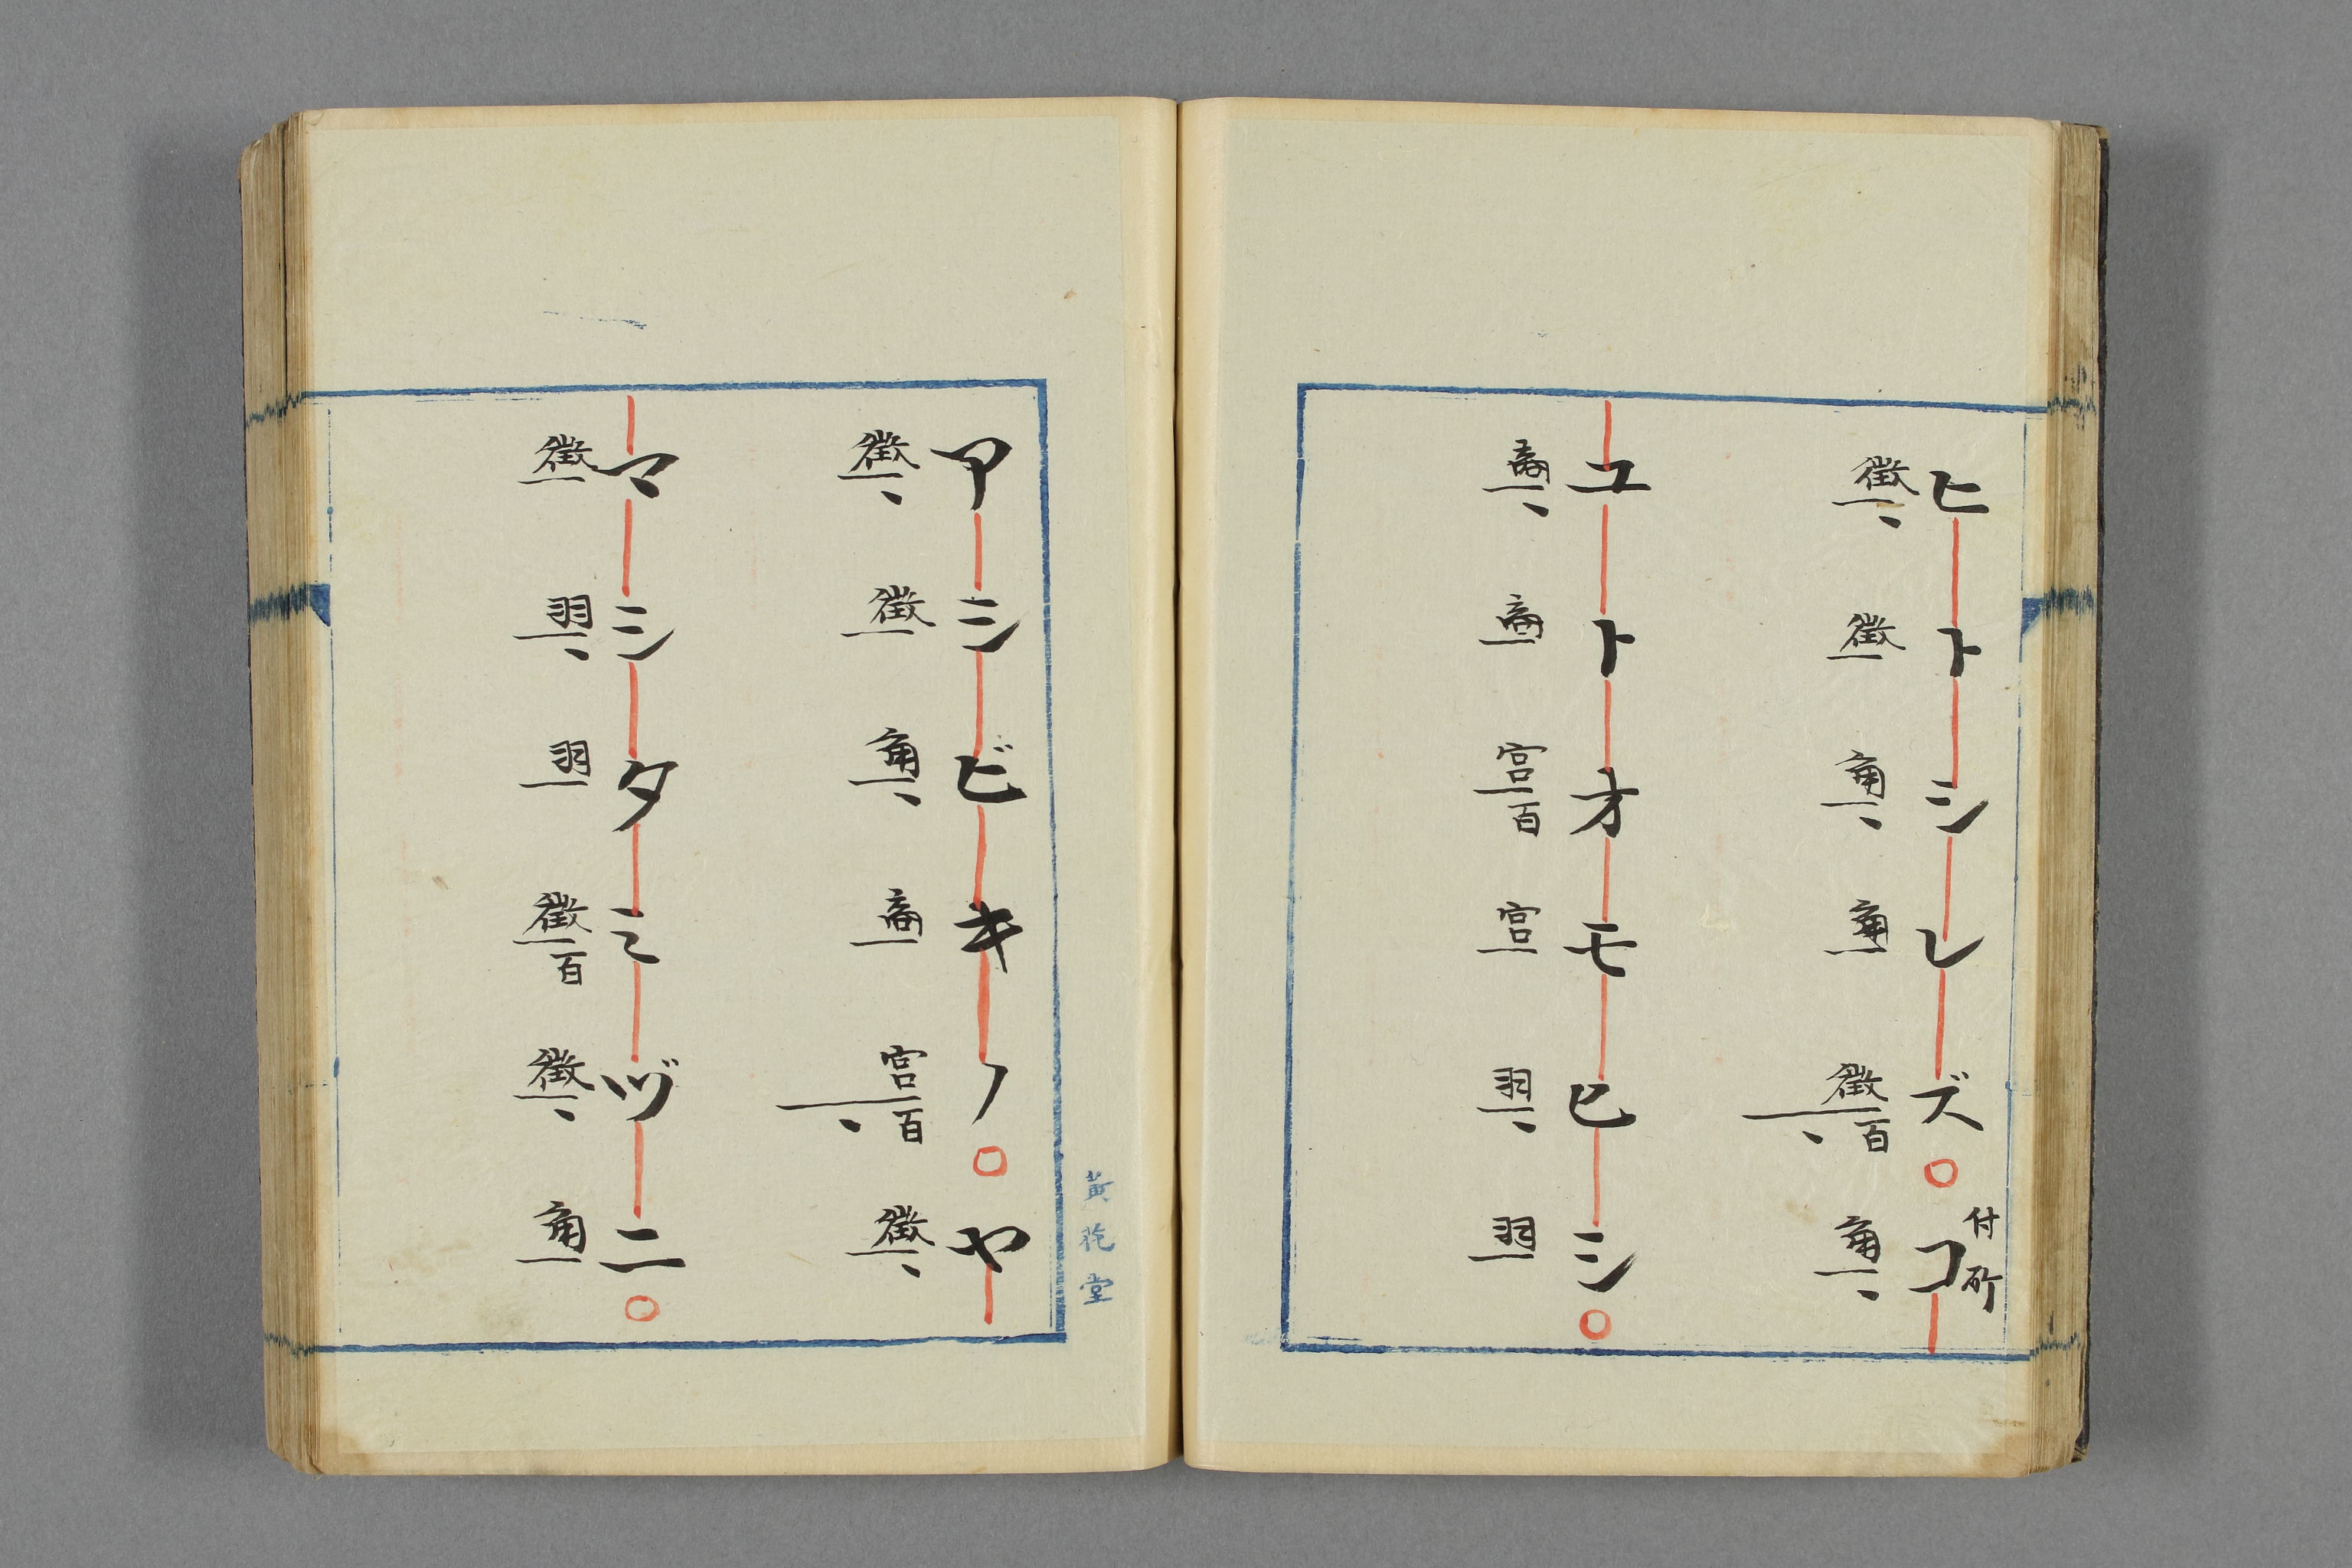 付所
ヒトシレズ○コ
徴、徴角、角徴百、角、
ユトオモヒシ○
商、商宮百宮羽、羽
アシビキノ○ヤ
徴、徴角、商宮百、徴、
マシタミヅニ○
徴羽、羽徴百徴、角
黄堂